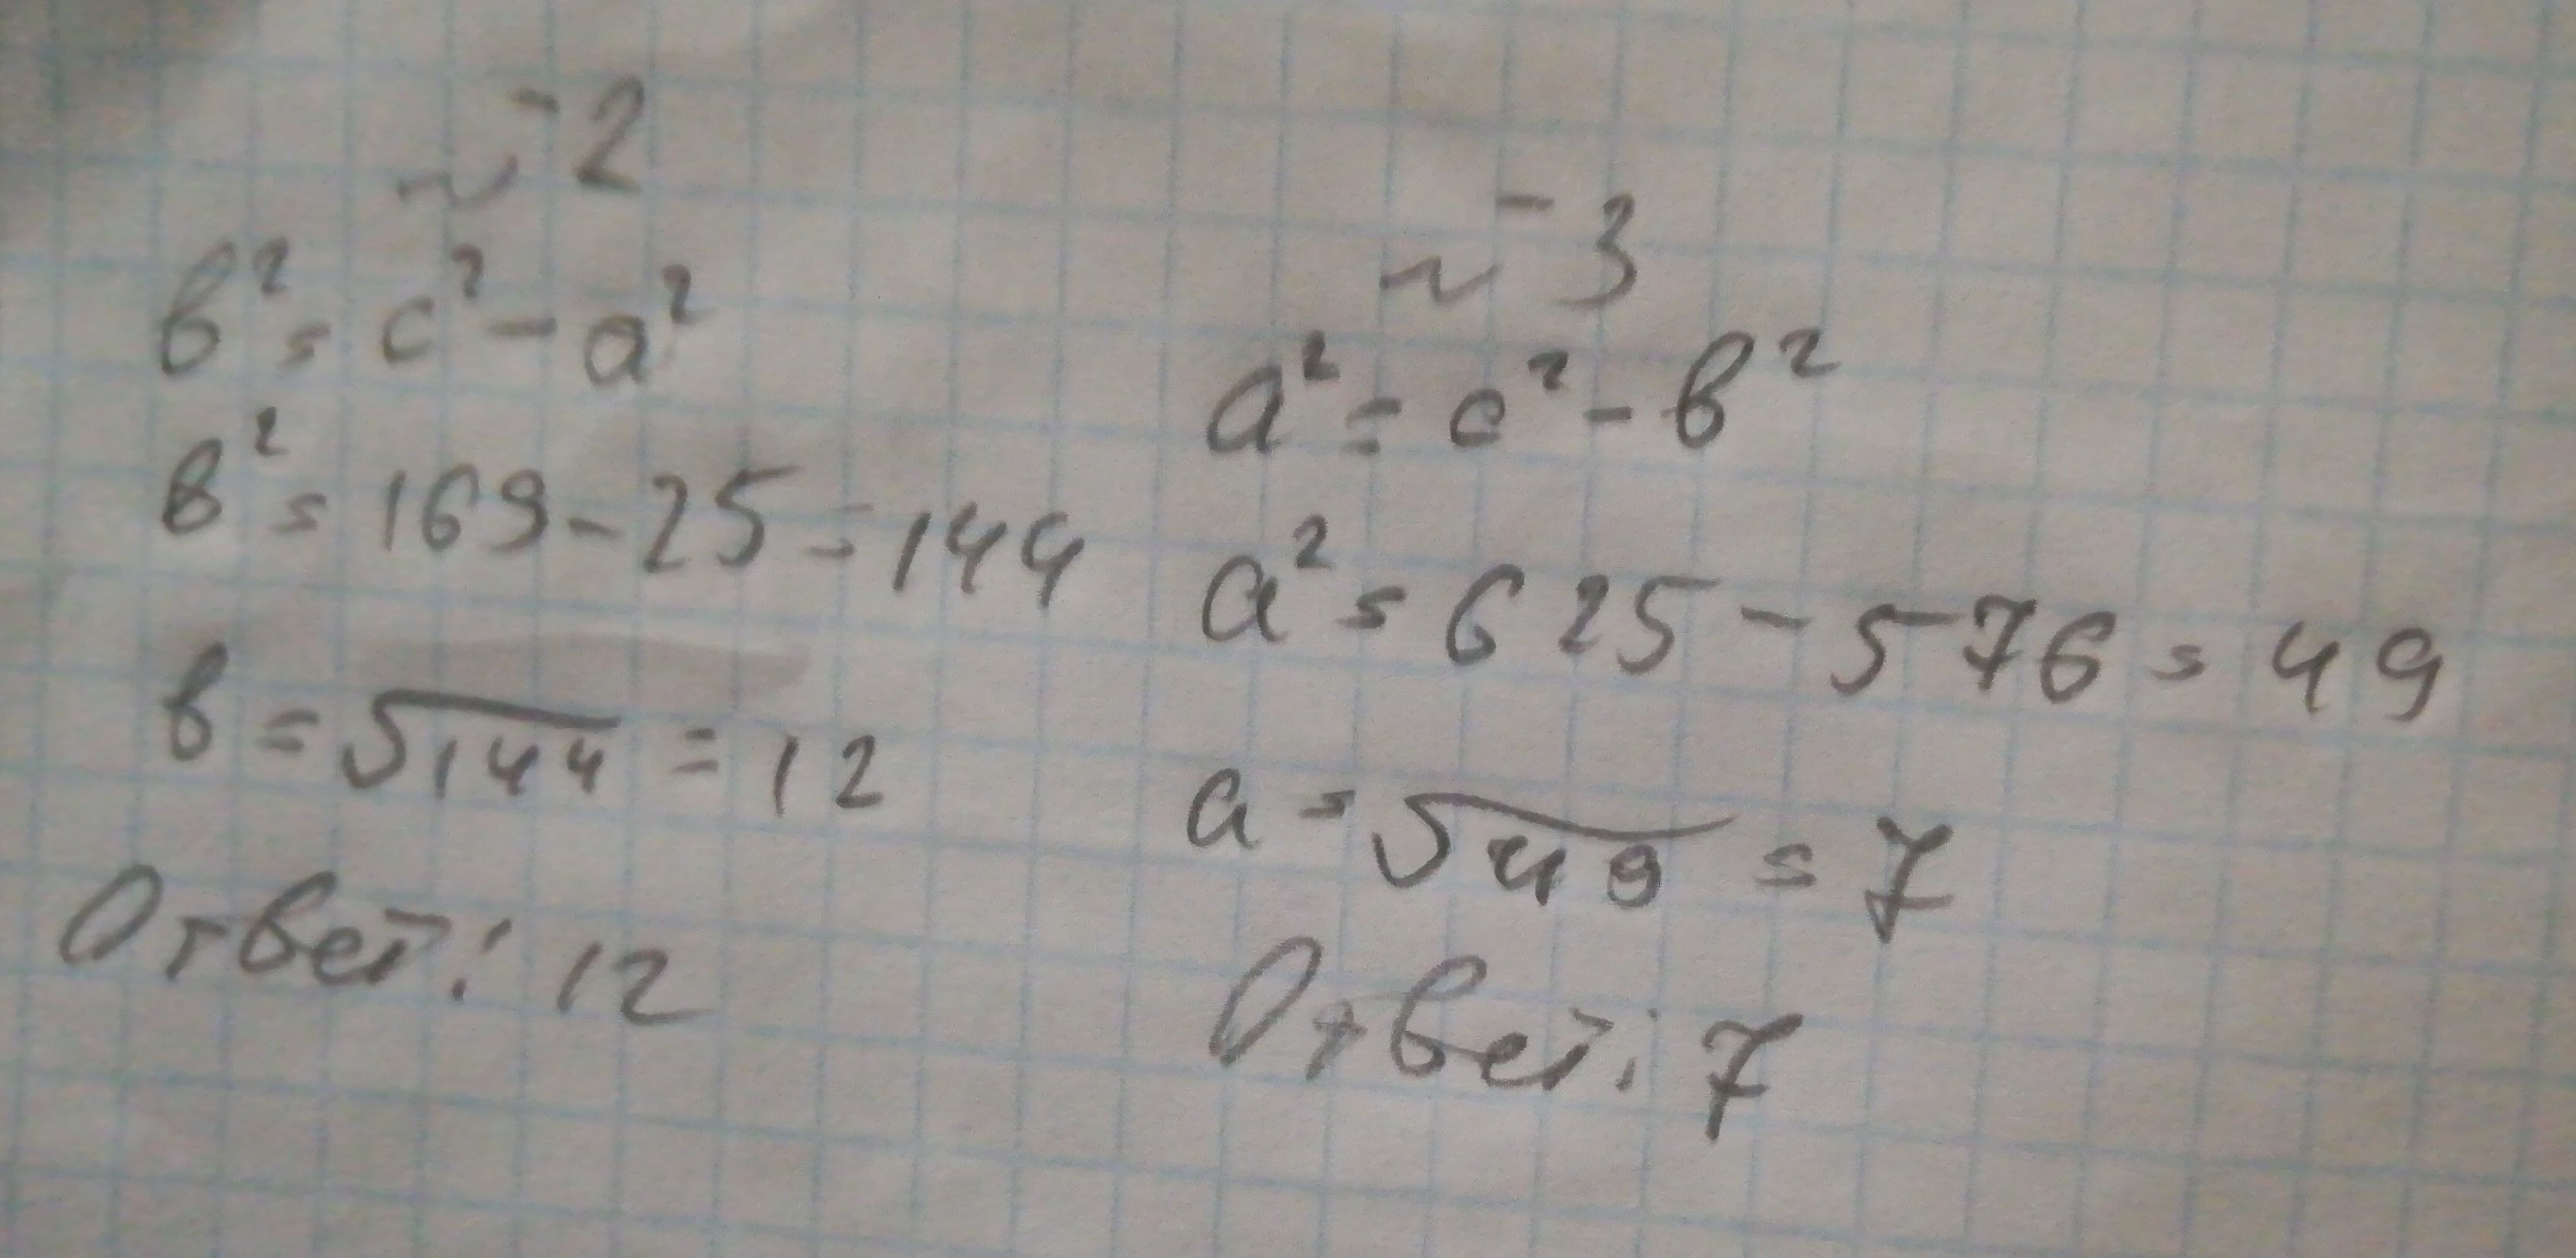 ~-2
в² = c² - a²
в² = 169 - 25 = 144
в = √144 = 12
Ответ: 12
~-3
a² = c² - в²
a² = 625 - 576 = 49
a = √49 = 7
Ответ: 7